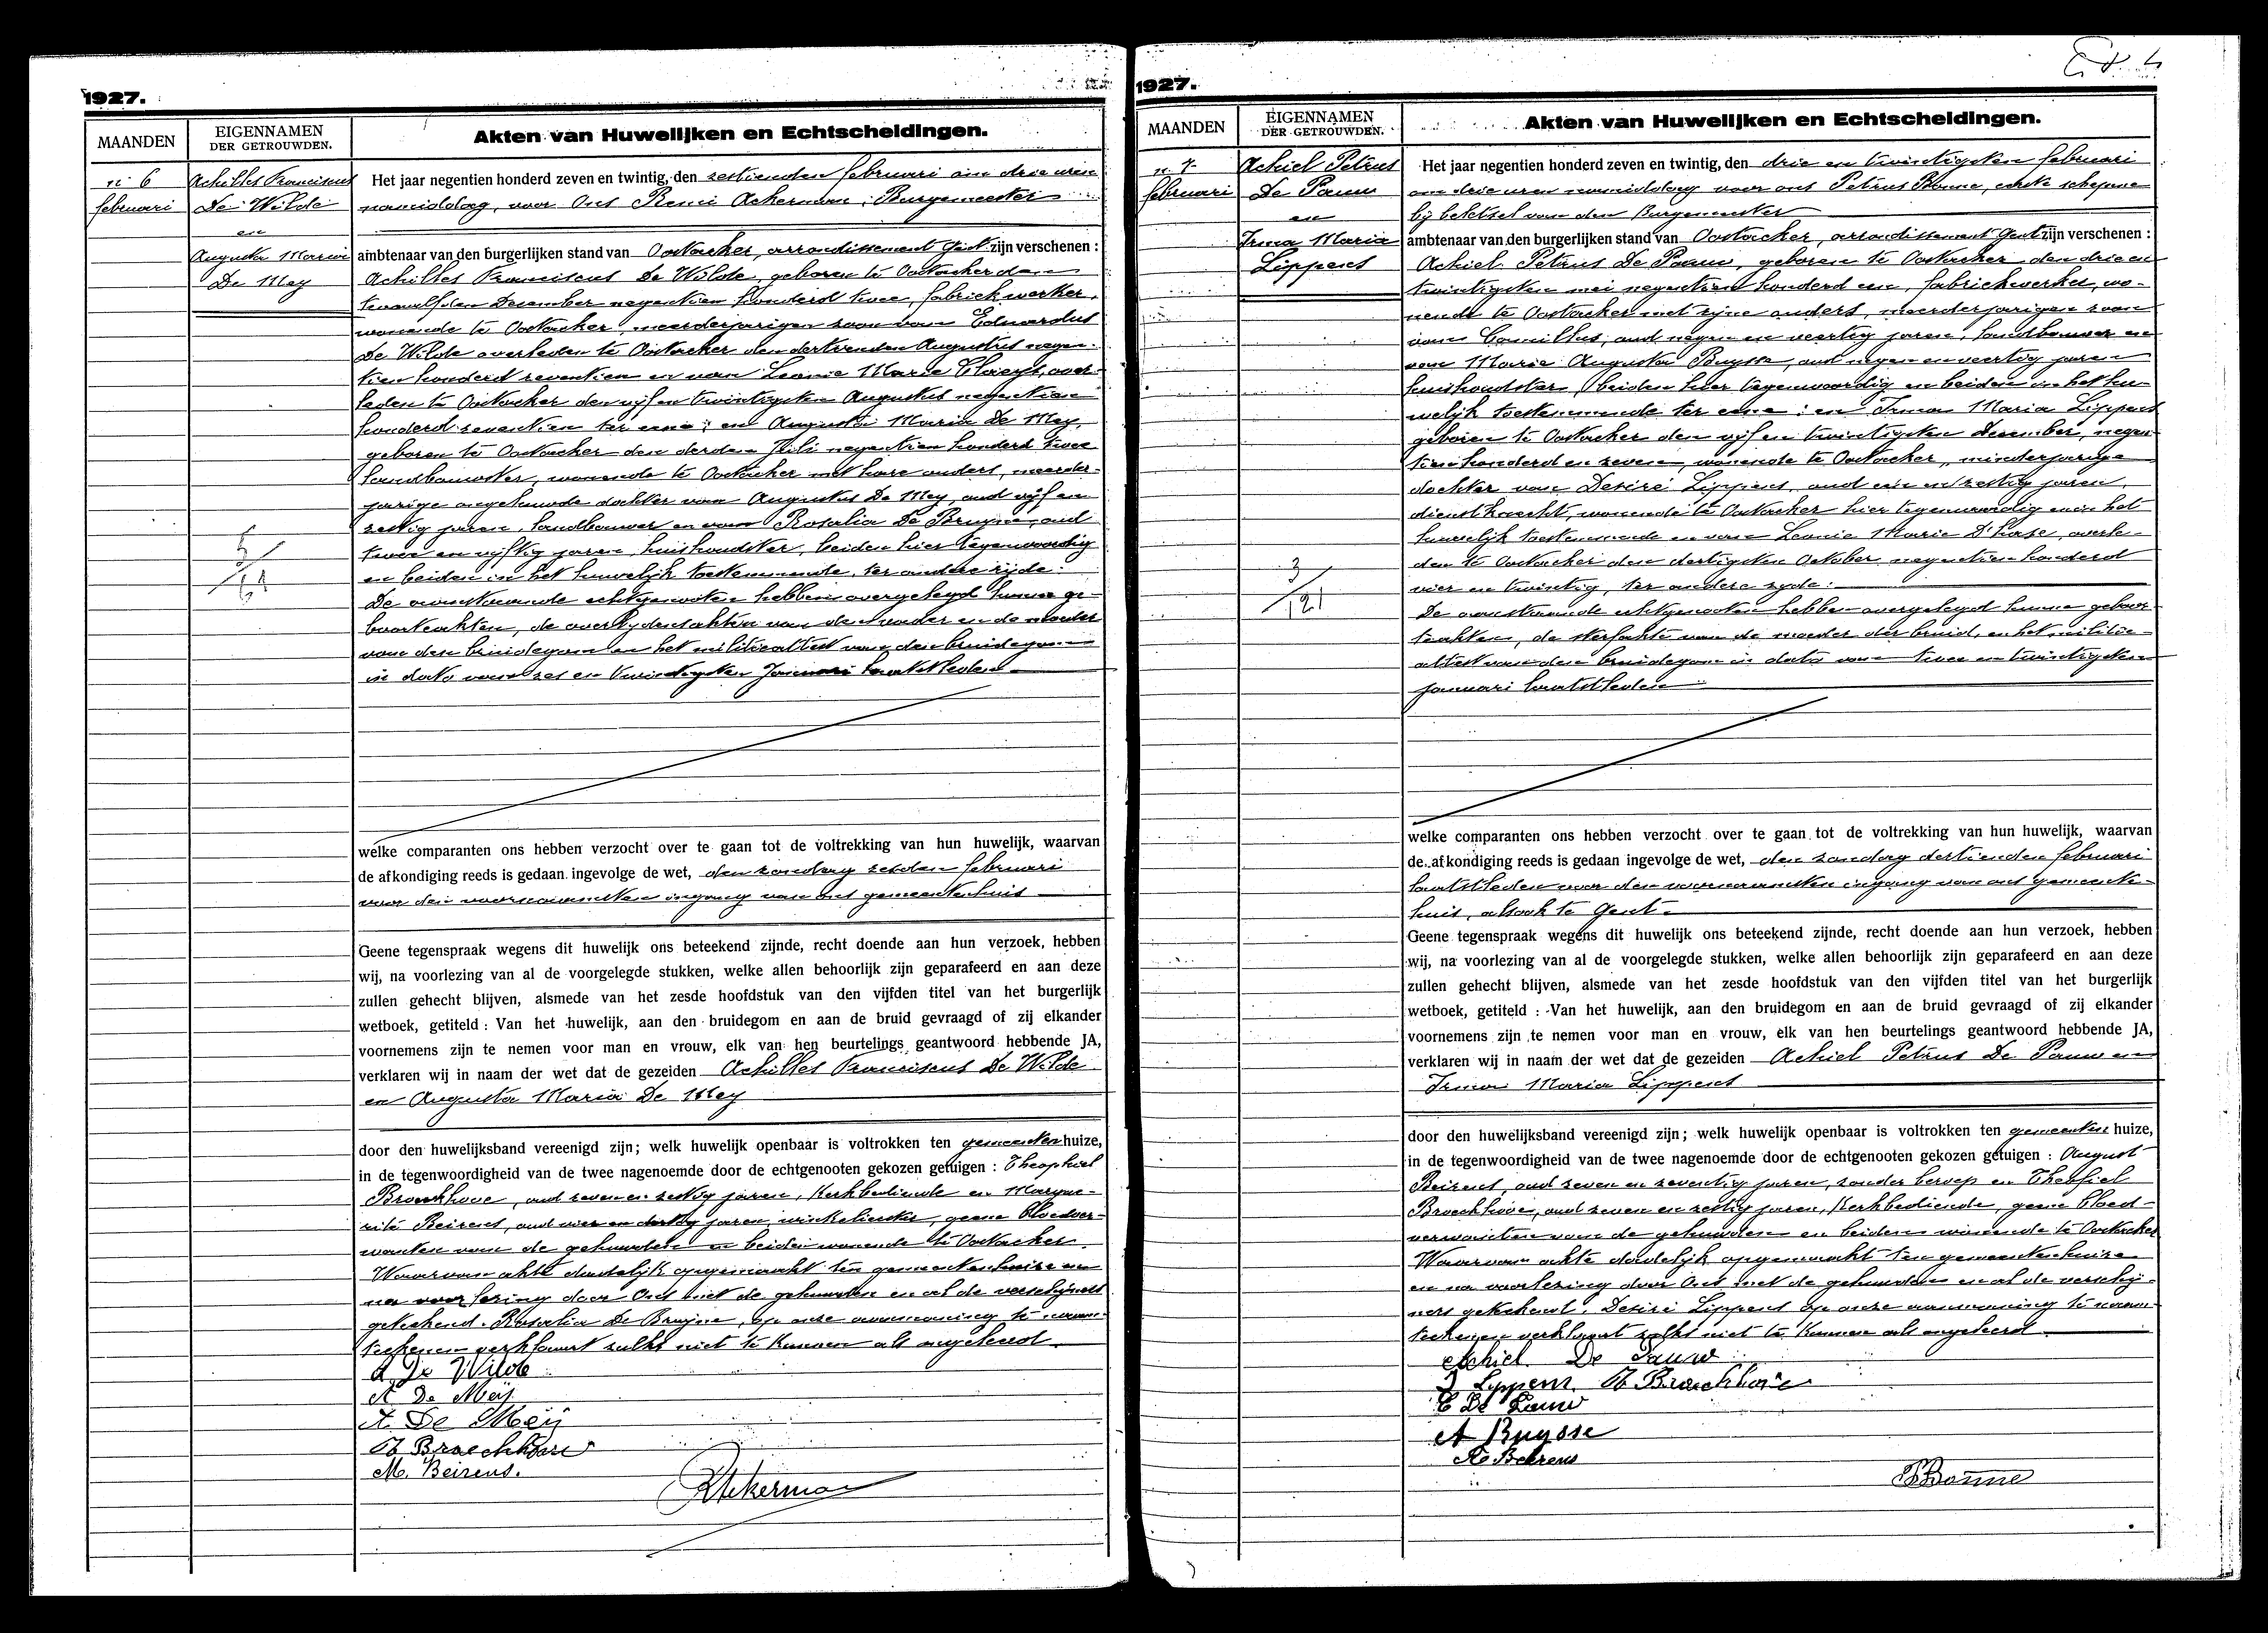 1927.
MAANDEN
EIGENNAMEN
DER GETROUWDEN.
Akten van Huwelijken en Echtscheidingen.
nr 6
februari
Achilles Franciscus
De Wilde
en
Augusta Maria
De Mey
Het jaar negentien honderd zeven en twintig, den zestienden februari om drie uren
namiddag, voor Ons Remi Ackerman, Burgemeester
ambtenaar van den burgerlijken stand van Oostacker, arrondissement Gent zijn verschenen :
Achilles Franciscus De Wilde, geboren te Oostacker den
twaalfden December negentien honderd twee, fabriekwerker,
wonende te Oostacker, meerderjarigen zoon van Eduardus
De Wilde overleden te Oostacker den dertienden Augustus negen-
tien honderd zeventien en van Leonie Marie Claeys, over-
leden te Oostacker den vijf en twintigsten Augustus negentien
honderd zeventien ter eene; en Augusta Maria De Mey,
geboren te Oostacker den derden Juli negentien honderd twee
landbouwster, wonende te Oostacker met hare ouders, meerder-
jarige ongehuwde dochter van Augustus De Mey, oud vijf en
zestig jaren, landbouwer en van Rosalia De Bruyne, oud
twee en vijftig jaren, huishoudster, beiden hier tegenwoordig
en beiden in het huwelijk toestemmende, ter andere zijde:
De aanstaande echtgenooten hebben overgelegd hunne ge-
boorteakten, de overlijdensakten van den vader en de moeder
van den bruidegom en het militieattest van den bruidegom
in dato van zes en twintigsten Januari laatstleden
5/61
welke comparanten ons hebben verzocht over te gaan tot de voltrekking van hun huwelijk, waarvan
de afkondiging reeds is gedaan ingevolge de wet, den zondag zesden februari
voor den voornaamsten ingang van ons gemeentenhuis
Geene tegenspraak wegens dit huwelijk ons beteekend zijnde, recht doende aan hun verzoek, hebben
wij, na voorlezing van al de voorgelegde stukken, welke allen behoorlijk zijn geparafeerd en aan deze
zullen gehecht blijven, alsmede van het zesde hoofdstuk van den vijfden titel van het burgerlijk
wetboek, getiteld : Van het huwelijk, aan den bruidegom en aan de bruid gevraagd of zij elkander
voornemens zijn te nemen voor man en vrouw, elk van hen beurtelings geantwoord hebbende JA,
verklaren wij in naam der wet dat de gezeiden Achilles Franciscus De Wilde
en Augusta Maria De Mey
door den huwelijksband vereenigd zijn; welk huwelijk openbaar is voltrokken ten gemeenten huize,
in de tegenwoordigheid van de twee nagenoemde door de echtgenooten gekozen getuigen : Theophiel
Broeckhove, oud zeven en zestig jaren, kerkbediende en Margue-
rite Beirens, oud vier en dertig jaren, winkelierster, geene bloedver-
wanten van de gehuwden en beiden wonende te Oostacker.
Waarvan akte dadelijk opgemaakt ten gemeentenhuize en
na voorlezing door Ons met de gehuwden en al de verschijners
geteekend. Rosalia De Bruyne, op onze aanmaning te naam-
teekenen verklaart zulks niet te kunnen als ongeleerd.
A. De Wilde
A De Meij
A. De Meij
Th Broeckhove
M. Beirens.
RAckerman
1927.
MAANDEN
EIGENNAMEN
DER GETROUWDEN.
Akten van Huwelijken en Echtscheidingen.
nr 7
februari
Achiel Petrus
De Pauw
en
Irma Maria
Lippens
Het jaar negentien honderd zeven en twintig, den drie en twintigsten februari
om drie uren namiddag voor ons Petrus Bonne, eerste schepene
bij beletsel van den Burgemeester
ambtenaar van den burgerlijken stand van Oostacker, arrondissement Gent zijn verschenen :
Achiel Petrus De Pauw, geboren te Oostacker den drie en
twintigsten mei negentien honderd een, fabriekwerker, wo-
nende te Oostacker met zijne ouders, meerderjarigen zoon
van Camillus, oud negen en veertig jaren, landbouwer en
van Marie Augusta Buysse, oud negen en veertig jaren
huishoudster, beiden hier tegenwoordig en beiden in het hu-
welijk toestemmende ter eene; en Irma Maria Lippens
geboren te Oostacker den vijf en twintigsten December, negen-
tien honderd en zeven, wonende te Oostacker, minderjarige
dochter van Desiré Lippens, oud een en zestig jaren,
dienstknecht, wonende te Oostacker hier tegenwoordig en in het
huwelijk toestemmende en van Leonie Marie D'hase, overle-
den te Oostacker den dertigsten October negentien honderd
vier en twintig, ter andere zijde:
De aanstaande echtgenooten hebben overgelegd hunne geboor-
teakten, de sterfakte van de moeder der bruid, en het militie-
attest van den bruidegom in dato van twee en twintigsten
januari laatstleden
3/121
welke comparanten ons hebben verzocht over te gaan tot de voltrekking van hun huwelijk, waarvan
de afkondiging reeds is gedaan ingevolge de wet, den zondag dertienden februari
laatstleden voor den voornaamsten ingang van ons gemeente-
huis, alsook te Gent.
Geene tegenspraak wegens dit huwelijk ons beteekend zijnde, recht doende aan hun verzoek, hebben
wij, na voorlezing van al de voorgelegde stukken, welke allen behoorlijk zijn geparafeerd en aan deze
zullen gehecht blijven, alsmede van het zesde hoofdstuk van den vijfden titel van het burgerlijk
wetboek, getiteld : Van het huwelijk, aan den bruidegom en aan de bruid gevraagd of zij elkander
voornemens zijn te nemen voor man en vrouw, elk van hen beurtelings geantwoord hebbende JA,
verklaren wij in naam der wet dat de gezeiden Achiel Petrus De Pauw en
Irma Maria Lippens
door den huwelijksband vereenigd zijn; welk huwelijk openbaar is voltrokken ten gemeenten huize,
in de tegenwoordigheid van de twee nagenoemde door de echtgenooten gekozen getuigen : August
Beirens, oud zeven en zeventig jaren, zonder beroep en Theofiel
Broeckhove, oud zeven en zestig jaren, kerkbediende, geene bloed-
verwanten van de gehuwden en beiden wonende te Oostacker
Waarvan akte dadelijk opgemaakt ten gemeentenhuize
en na voorlezing door Ons met de gehuwden en al de verschij-
ners geteekend. Desiré Lippens op onze aanmaning te naam-
teekenen verklaart zulks niet te kunnen als ongeleerd
Achiel De Pauw
I Lippens Th Broeckhove
C De Pauw
A Buysse
A Beirens
PBonne